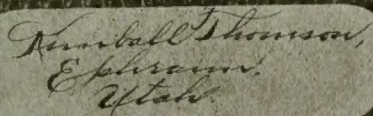 Kimball Thomson,
Ephraim.
Utah